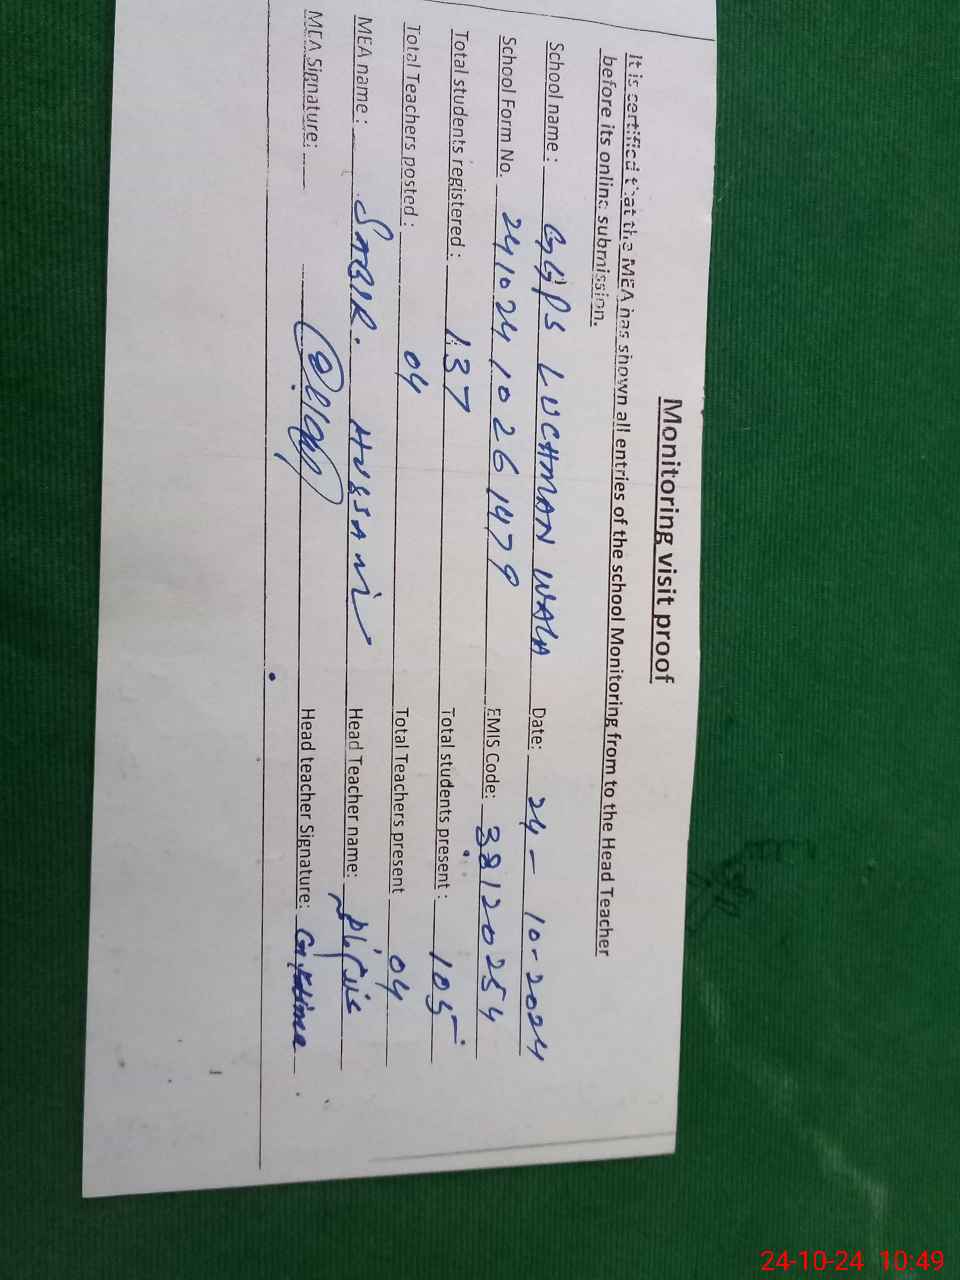 Monitoring visit proof
It is certified that the MEA has shown all entries of the school Monitoring from to the Head Teacher
before its online submission.
School name : GGPS LUCHMAN WALA Date: 24-10-2024
School Form No. 241024 1026 1479 EMIS Code: 38120254
Total students registered : 137 Total students present : 105
Total Teachers posted : 04 Total Teachers present 04
MEA name : SABIR. HUSSAIN Head Teacher name:
MEA Signature: Head teacher Signature: G. Fatima
24-10-24 10:49